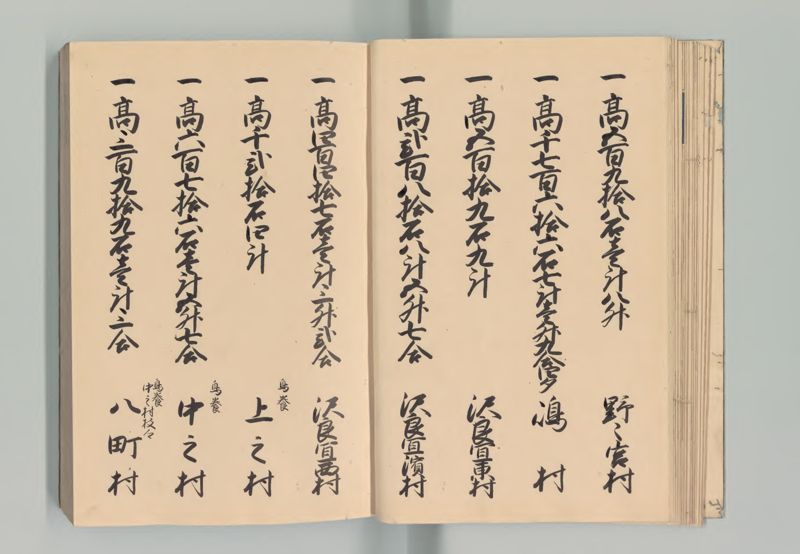 一高五百九拾八石壱斗八升 野々宮村
一高千七百六拾六石七斗壱升九合 村
一高五百拾九石九斗 沢良宜東村
一高弐百八拾石八斗五升七合 沢良宜濱村
一高四百四拾七石壱斗三升弐合 沢良宜西村
一高千弐拾石四斗 鳥養 上之村
一高六百七拾六石壱斗五升七合 鳥養 中之村
一高三百九拾九石壱斗三合 鳥養中之村枝 八町村